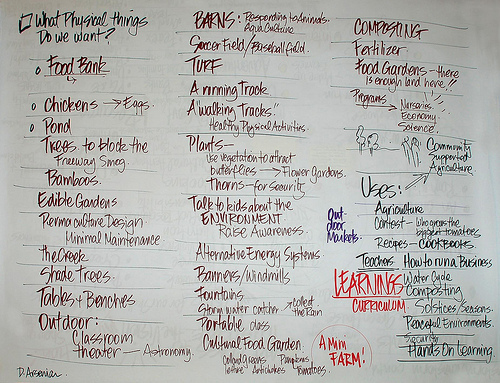 What Physical things
Do we want?
Food Bank
Chickens → Eggs
Pond
Trees to block the
Freeway Smog.
Bamboos.
Edible Gardens
Permaculture Design
Minimal Maintenance
The Creek
Shade Trees.
Tables + Benches
Outdoor:
Classroom
theater — Astronomy.
D. Arsenian
BARNS: Responding to Animals.
Aqua Culture
Soccer Field/Baseball field.
TURF
A running Track
A "walking Tracks."
Healthy Physical Activities.
Plants—
use vegetation to attract
butterflies → Flower gardens.
Thorns—for security
Talk to kids about the
ENVIRONMENT.
Raise Awareness.
Alternative Energy Systems
Banners/Windmills
Fountains
Storm water catcher → collect
the Rain
Portable class
Cultural Food Garden.
Collard Greens Pumpkins
lettuce Artichokes Tomatoes.
Out
door
Markets.
A Mini
FARM!
COMPOSTING
Fertilizer
Food Gardens—there
is enough land here!!
Programs → Nurseries
Economy
Science
Community
Supported
Agriculture
Uses:
Agriculture
Contest— who grows the
biggest tomatoes
Recipes—COOKBOOKS
Teachers How to run a Business
LEARNINGS
CURRICULUM
Water Cycle
Composting
Solstices/Seasons.
Peaceful Environments.
Security
Hands On Learning